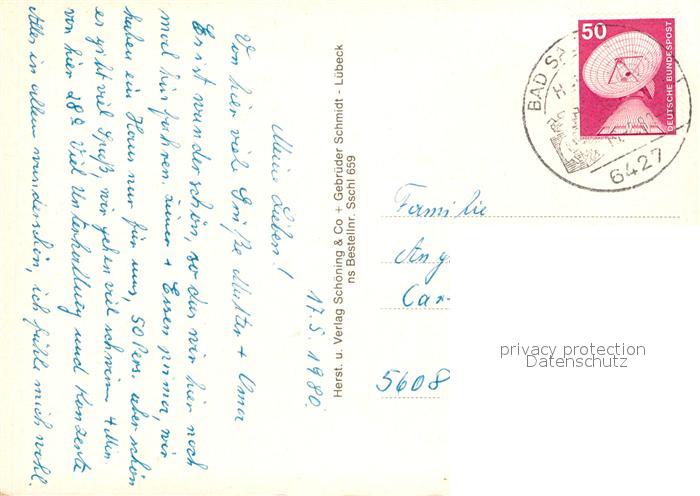 17.5.1980.
Meine Lieben!
Von hier viele Grüße Mutter + Oma
Es ist wunderschön, so das wir hier noch
mal hin fahren. Zimmer + Essen prima, wir
haben ein Haus nur für uns, 50 Pers. aber schön
es gibt viel Spaß, wir gehen viel schwimm. 4 Min.
von hier 28° Viel Unterhaltung und Konzerte
Alles in allem wunderschön, ich fühle mich wohl.
Herst. u. Verlag Schöning & Co + Gebrüder Schmidt - Lübeck
ns Bestellnr. Sschl 659
50
DEUTSCHE BUNDESPOST
BAD SA
6427
Familie
Ang
Car
5608
privacy protection
Datenschutz